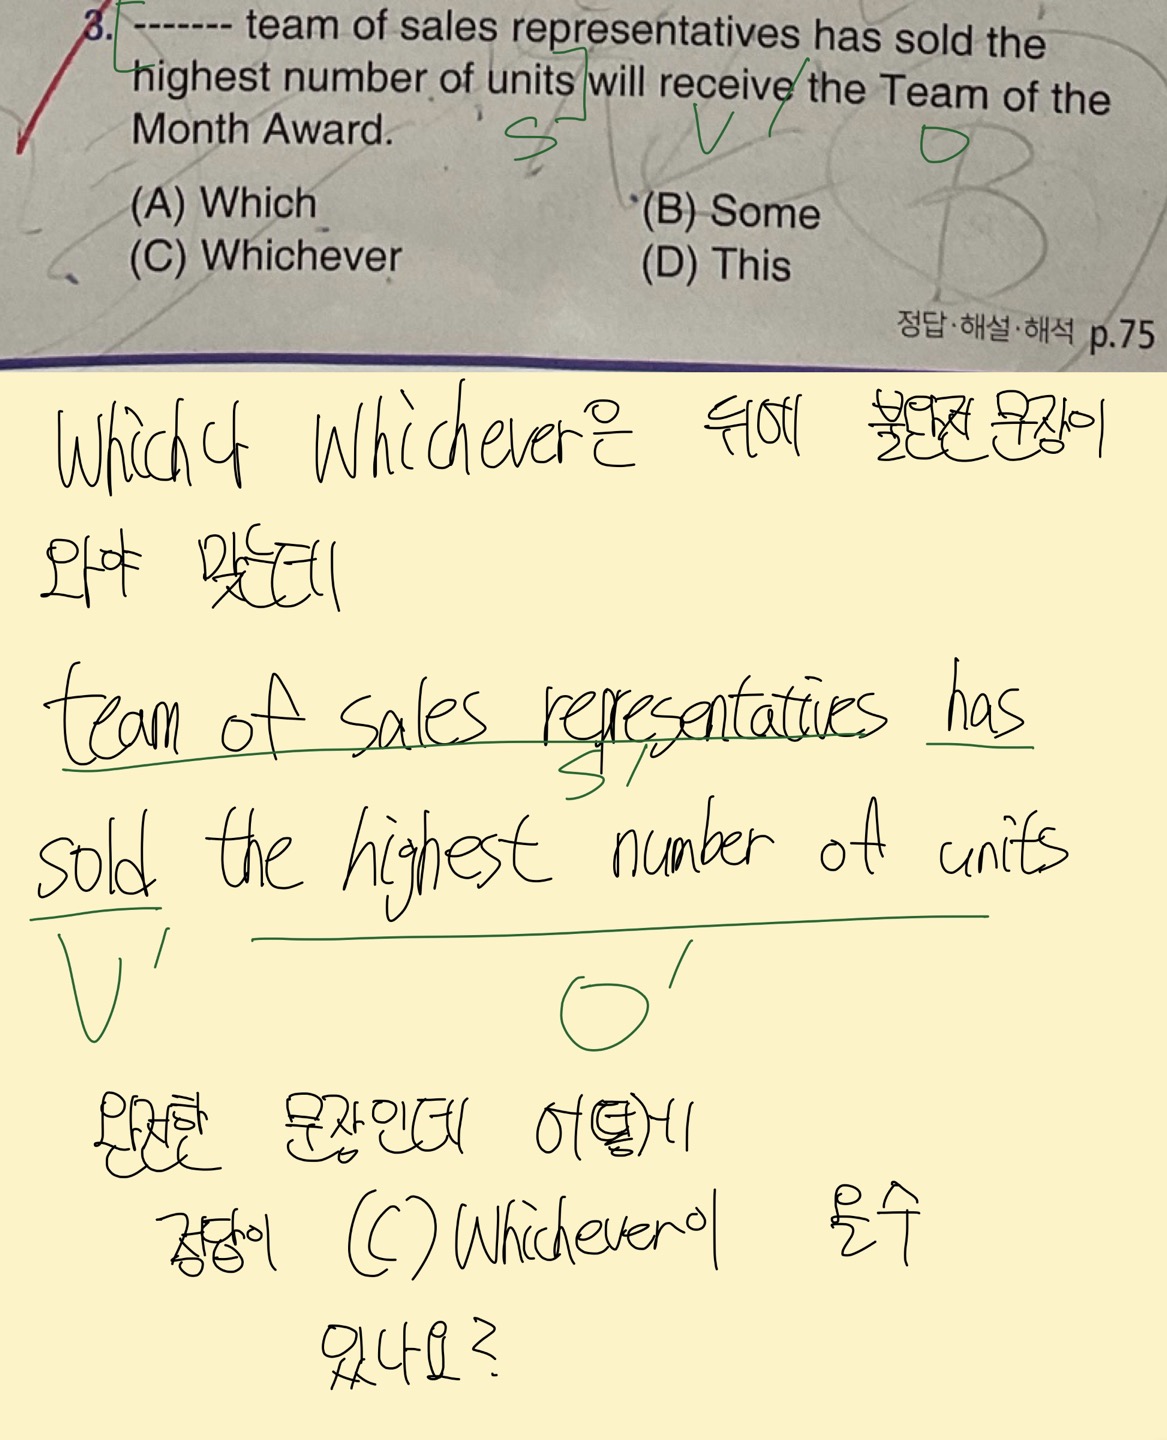 3. ------- team of sales representatives has sold the
highest number of units will receive the Team of the
Month Award.
S' V O
(A) Which (B) Some
(C) Whichever (D) This
B
정답·해설·해석 p.75
Which나 Whichever은 뒤에 불완전 문장이
와야 맞는데
team of sales representatives has
S'
sold the highest number of units
V' O'
완전한 문장인데 어떻게
정답이 (C) Whichever이 올수
있나요?